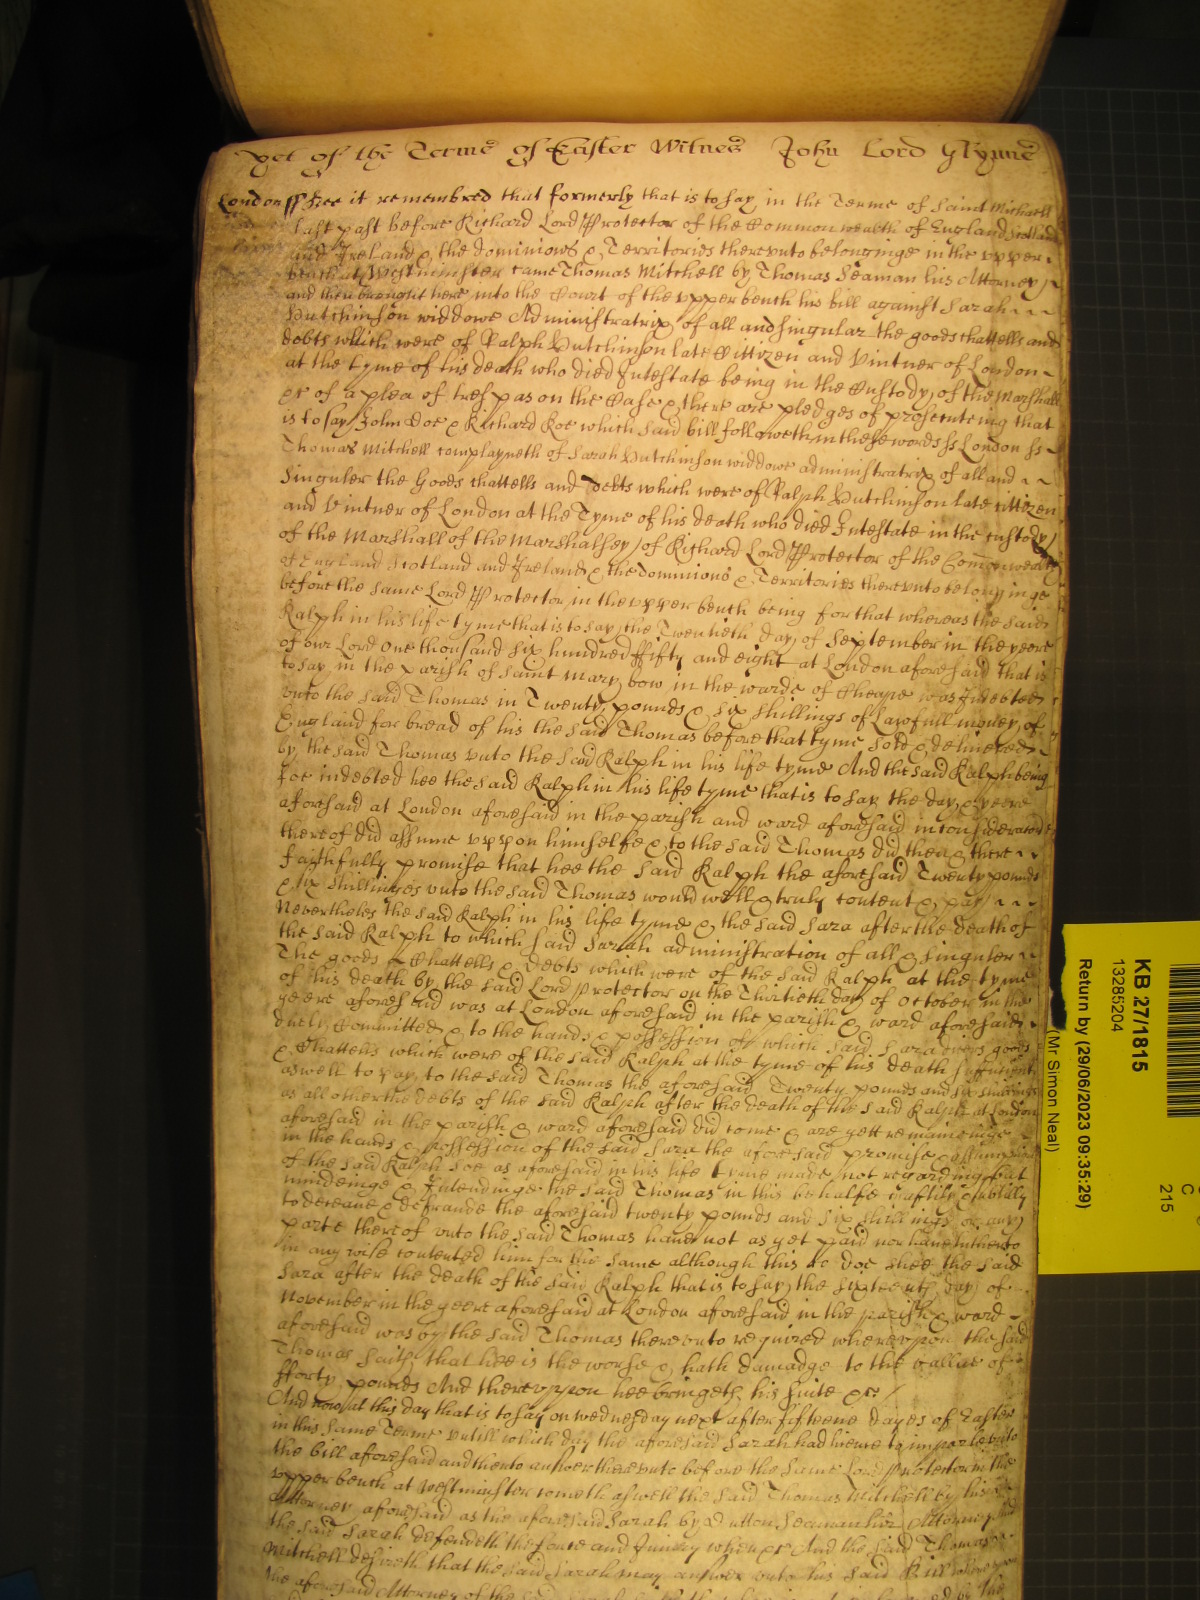 yet of the Terme of Easter Witnes John Lord Glynne
London ss Bee it remembred that formerly that is to say in the Terme of Saint Michaell
last past before Richard Lord Protector of the Common wealth of England Scotland
and Ireland & the dominions & Territories therevnto belonginge in the vpper
bench at Westminster came Thomas Mitchell by Thomas Seaman his Attorney
and then brought here into the Court of the vpper bench his bill against Sarah
Hutchinson widdowe Administratrix of all and singular the goods chattells and
debts which were of Ralph Hutchinson late Cittizen and Vintner of London
at the tyme of his death who died Intestate being in the Custody of the Marshall
&c of a plea of trespas on the Case & there are pledges of prosecuteing that
is to say John Doe & Richard Roe which said bill followeth in these words ss London ss
Thomas Mitchell complayneth of Sarah Hutchinson widdowe administratrix of all and
Singuler the Goods chattells and Debts which were of Ralph Hutchinson late cittizen
and Vintner of London at the Tyme of his death who died Intestate in the custody
of the Marshall of the Marshalsey of Richard Lord Protector of the Commonwealth
of England Scotland and Ireland & the dominions & Territories therevnto belonginge
before the same Lord Protector in the vpper bench being for that whereas the said
Ralph in his life tyme that is to say the Twentieth day of September in the yeere
of our Lord One thousand six hundred ffifty and eight at London aforesaid that is
to say in the parish of Saint Mary bow in the warde of Cheape was Indebted
vnto the said Thomas in Twenty pounds & six shillings of Lawfull money of
England for bread of his the said Thomas before that tyme sold & delivered
by the said Thomas vnto the said Ralph in his life tyme And the said Ralph being
soe indebted hee the said Ralph in his life tyme that is to say the day & yeere
aforesaid at London aforesaid in the parish and ward aforesaid in consideracon
thereof did assume vppon himselfe & to the said Thomas did then & there
faithfully promise that hee the said Ralph the aforesaid Twenty pounds
& six shillinges vnto the said Thomas would well & truly content & pay
Neverthelesse the said Ralph in his life tyme & the said Sara after the death of
the said Ralph to which said Sarah administration of all & singuler
The goods Chattells & debts which were of the said Ralph at the tyme
of his death by the said Lord Protector on the Thirtieth day of October in the
yeere aforesaid was at London aforesaid in the parish & ward aforesaid
duely Committed & to the hands & possession of which said Sara divers goods
& Chattells which were of the said Ralph at the tyme of his death sufficient
aswell to pay to the said Thomas the aforesaid Twenty pounds and six shillings
as all other the debts of the said Ralph after the death of the said Ralph at London
aforesaid in the parish & ward aforesaid did come & are yett remaineinge
in the hands & possession of the said Sara the aforesaid promise & assumption
of the said Ralph soe as aforesaid in his life tyme made not regarding but
mindeinge & Intendinge the said Thomas in this behalfe craftily & subtilly
to deceave & defraude the aforesaid twenty pounds and six shillings or any
parte thereof vnto the said Thomas have not as yet paid nor have hitherto
in any wise contented him for the same although this to doe shee the said
Sara after the death of the said Ralph that is to say the sixteenth day of
November in the yeere aforesaid at London aforesaid in the parish & ward
aforesaid was by the said Thomas therevnto required wherevppon the said
Thomas saith that hee is the worse & hath damadge to the vallue of
fforty pounds And therevppon hee bringeth his suite &c
And now at this day that is to say on wednesday next after fifteene dayes of Easter
in this same Terme vntill which day the aforesaid Sarah had licence to imparle vnto
the bill aforesaid and then to answer therevnto before the same Lord Protector in the
vpper bench at Westminster cometh aswell the said Thomas Mitchell by his
Attorney aforesaid as the aforesaid Sarah by Seaman her Attorney And
the said Sarah defendeth the force and Iniury when &c And the said Thomas
Mitchell desireth that the said Sarah may answer vnto his said Bill
the aforesaid Attorney of the
KB 27/1815
13285204
Return by (29/06/2023 09:35:29)
(Mr Simon Neal)
C
215